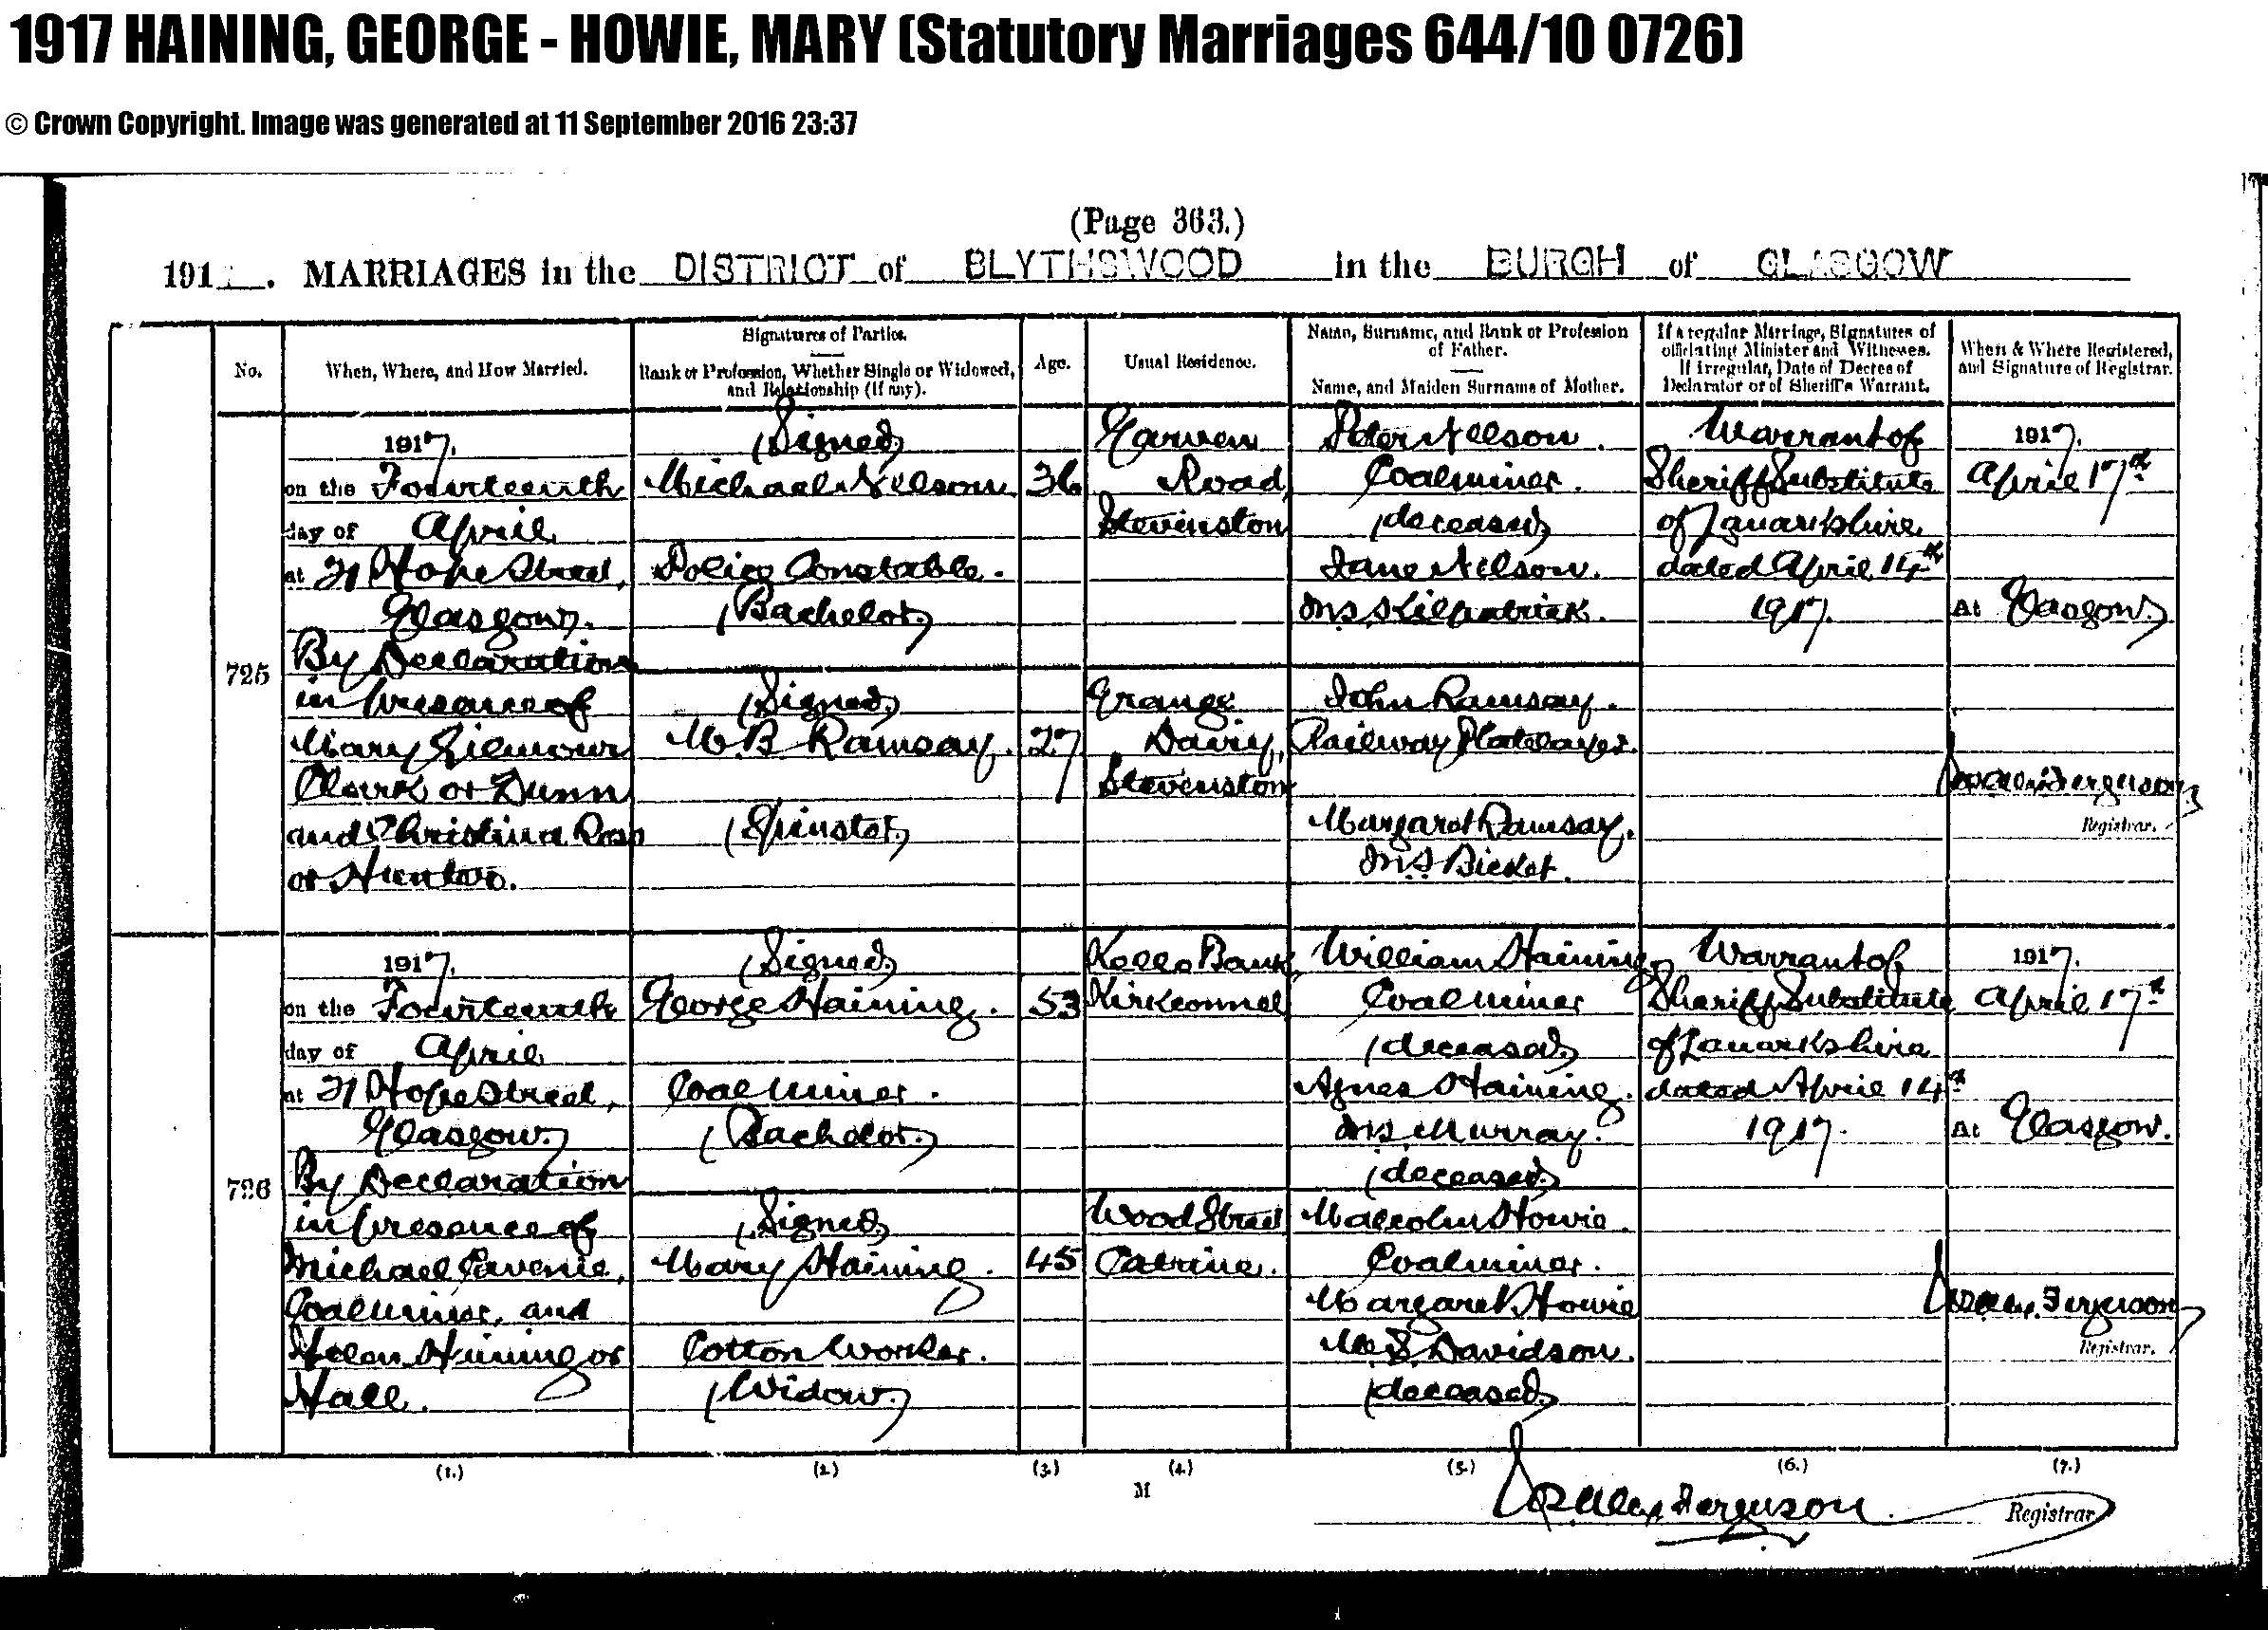 1917 HAINING, GEORGE - HOWIE, MARY (Statutory Marriages 644/10 0726)
© Crown Copyright. Image was generated at 11 September 2016 23:37
(Page 363.)
191 . MARRIAGES in the DISTRICT of BLYTHSWOOD in the BURGH of GLASGOW
No.
When, Where, and How Married.
Signatures of Parties.
Rank or Profession, Whether Single or Widowed,
and Relationship (if any).
Age.
Usual Residence.
Name, Surname, and Rank or Profession
of Father.
Name, and Maiden Surname of Mother.
If a regular Marriage, Signatures of
officiating Minister and Witnesses.
If Irregular, Date of Decree of
Declarator or of Sheriff's Warrant.
When & Where Registered,
and Signature of Registrar.
725
1917.
on the Fourteenth
day of April
at 21 Hope Street,
Glasgow.
By Declaration
in presence of
Mary Gilmour
Clark or Dunn
and Christina Ross
or Hunter.
(Signed)
Michael Nelson
Police Constable.
(Bachelor)
(Signed)
M B Ramsay.
(Spinster)
36
27
Garven
Road,
Stevenston
Grange
Dairy,
Stevenston
Peter Nelson.
Coalminer.
(deceased)
Jane Nelson.
M.S. Kilpatrick.
John Ramsay.
Railway Platelayer.
Margaret Ramsay.
M.S. Bicket.
Warrant of
Sheriff Substitute
of Lanarkshire
dated April 14th
1917.
1917.
April 17th
At Glasgow.
Ferguson
Registrar.
726
1917.
on the Fourteenth
day of April
at 21 Hope Street,
Glasgow.
By Declaration
in presence of
Michael
Coalminer, and
Helen Haining or
Hall.
(Signed)
George Haining.
Coalminer.
(Bachelor.)
(Signed)
Mary Haining.
Cotton Worker.
(Widow)
53
45
Kello Bank,
Kirkconnel
Wood Street
Catrine.
William Haining
Coalminer
(deceased)
Agnes Haining.
M.S. Murray.
(deceased)
Malcolm Howie.
Coalminer.
Margaret Howie
M.S. Davidson.
(deceased)
Warrant of
Sheriff Substitute
of Lanarkshire
dated April 14th
1917.
1917.
April 17th
At Glasgow.
Alex. Ferguson
Registrar.
(1.) (2.) (3.) (4.) (5.) (6.) (7.)
M
Alex. Ferguson. Registrar